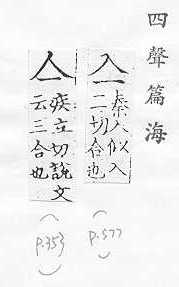 四聲篇海
亼
秦入似入
二切合也
(P.577)
亼
疾立切說文
云三合也
(P.353)